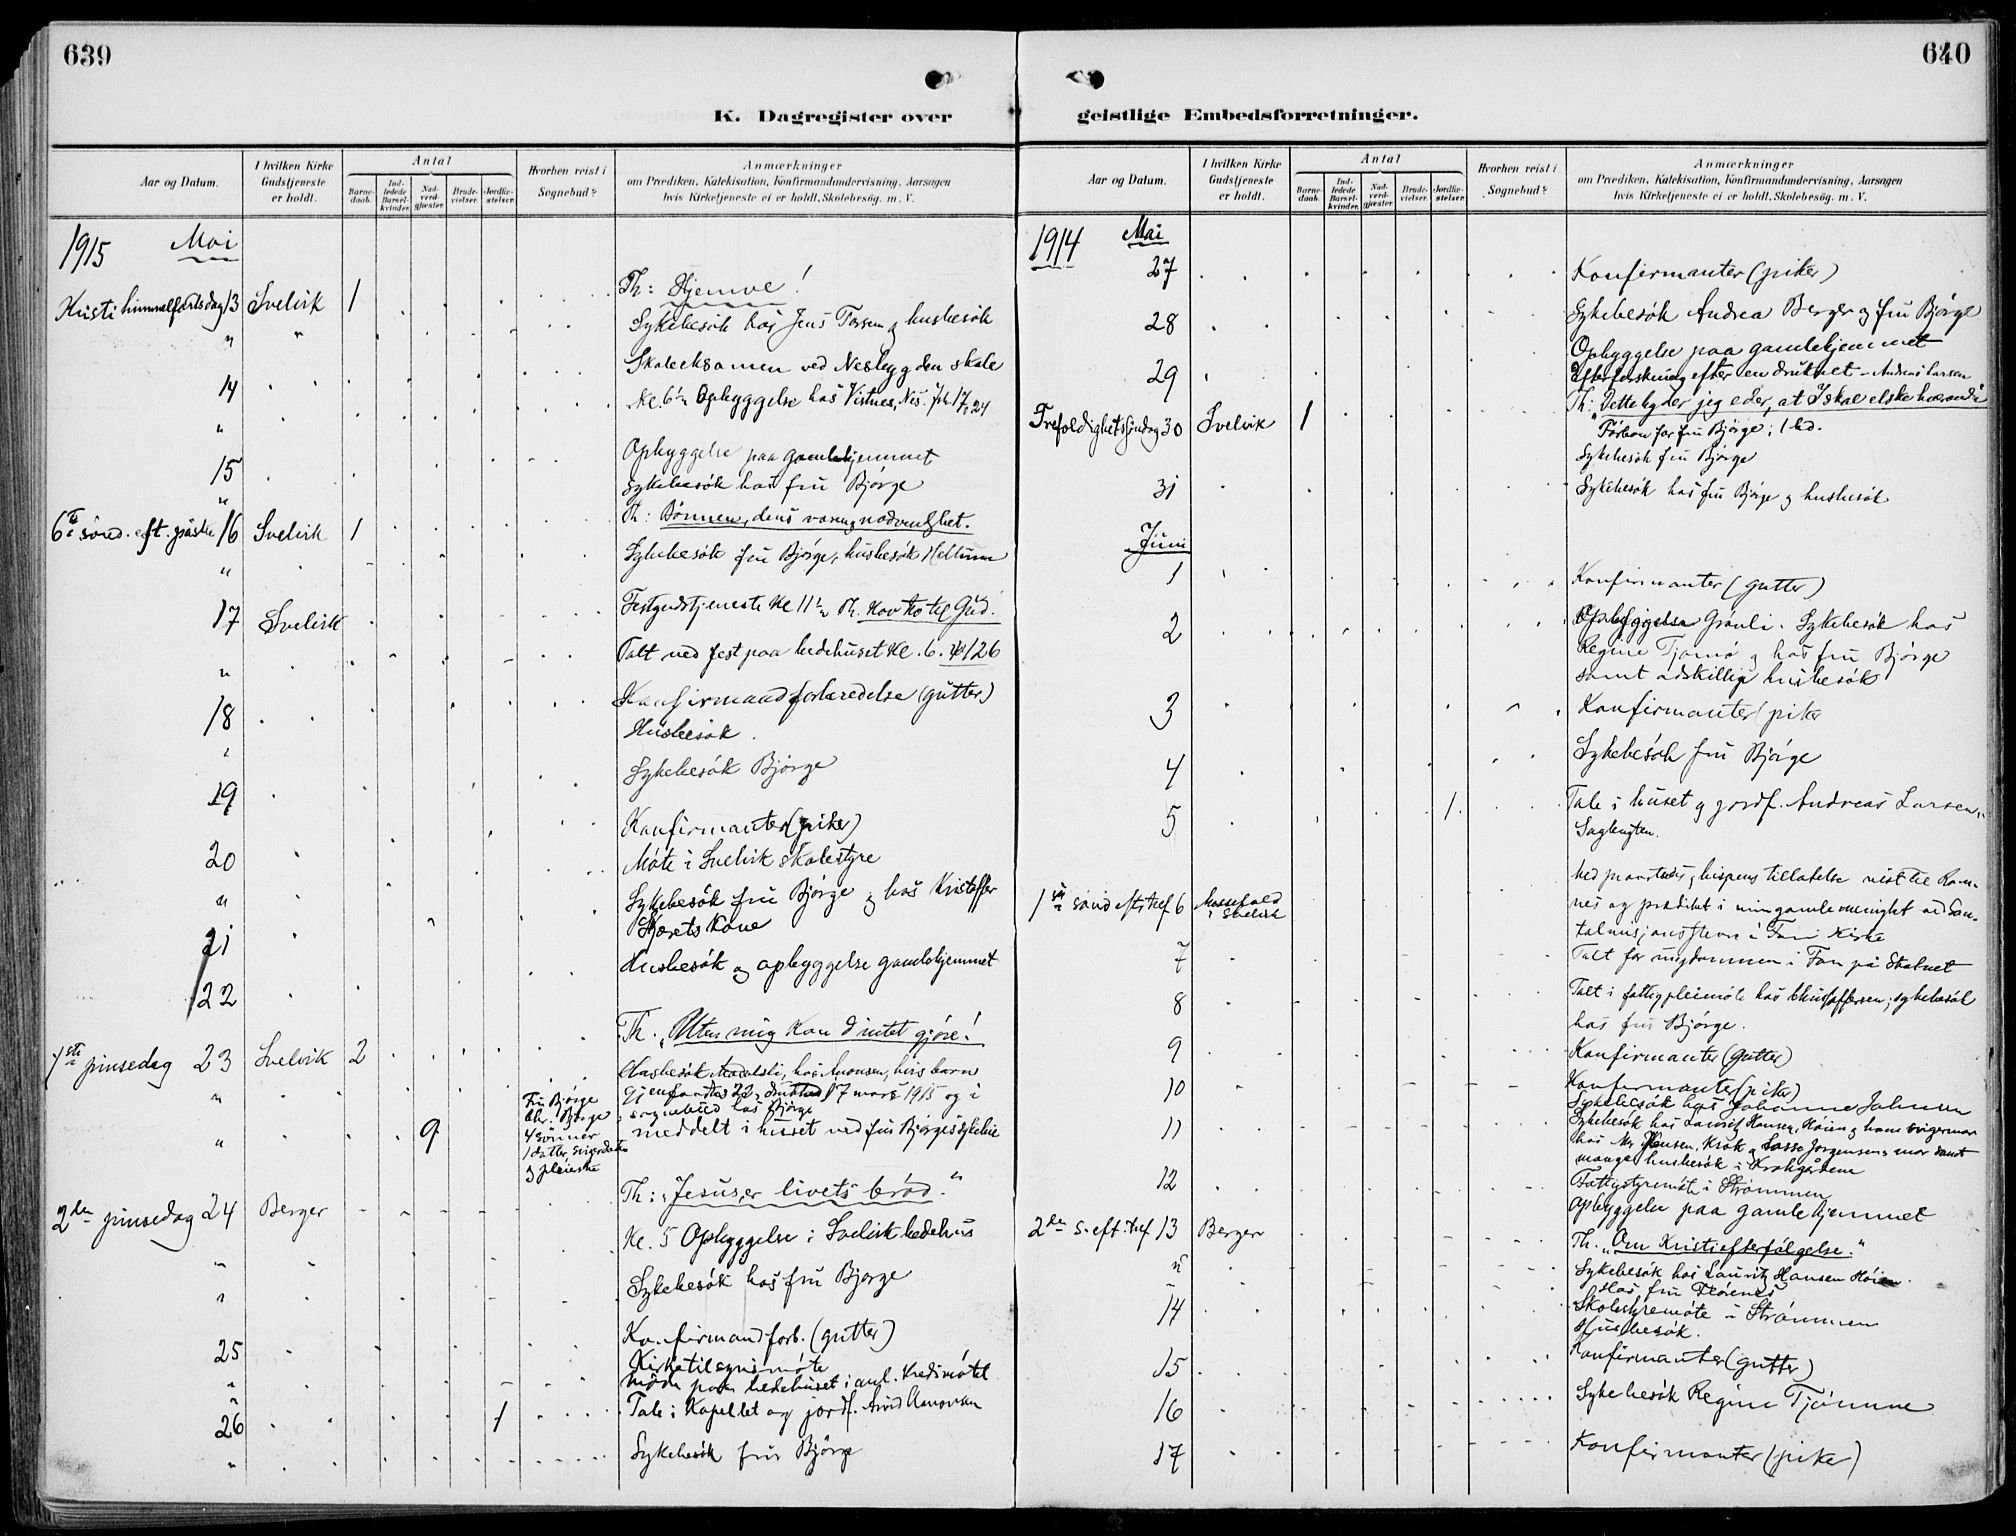 639
K. Dagregister over
Aar og Datum.
I hvilken Kirke Gudstjeneste er holdt.
Antal
Barnedaab.
Indledede Barselkvinder.
Nadverdgjæster.
Brudevielser.
Jordfæstelser.
Hvorhen reist i Sognebud?
Anmærkninger
om Prædiken, Katekisation, Konfirmandundervisning, Aarsagen
hvis Kirketjeneste ei er holdt, Skolebesøg. m. V.
1915 Mai
Kristi himmelfartsdag 13 Svelvik 1 Th: Hjemve!
" " Sykebesök hos Jens Torsen og husbesök
14 Skoleeksamen ved Nesbygden skole
" Kl. 6½ Opbyggelse hos Vistnes, Nes. Joh. 17,24
15 Opbyggelse paa gamlehjemmet
" Sykebesök hos fru Bjørge
6te sönd. eft. påske 16 Svelvik 1 Th: Bönnen, dens nödvendighet.
" Sykebesök fru Bjørge, husbesök Mellum
17 Svelvik Festgudstjeneste Kl 11½ Th. Hav tro til Gud.
" Talt ved fest paa bedehuset Kl. 6. ψ 126
18 Konfirmandforberedelse (gutter)
" Husbesök.
19 Sykebesök Bjørge
20 Konfirmanter (piker)
" Möte i Svelvik skolestyre
21 Sykebesök fru Bjørge og hos Kristoffer
Skjærets Kone
22 Husbesök og opbyggelse gamlehjemmet
1ste pinsedag 23 Svelvik 2 Th. "Uten mig kan I intet gjöre!"
" Husbesök hos Amonsen, hvis barn
gjenfandtes 22, druknet 17 mars 1915 og i
sognebud hos Bjørge
" 9 Fru Bjørge
Chr. Bjørge
4 sönner
1 datter, svigerdatter
og pleierske
meddelt i huset ved fru Bjørges sykeleie
2den pinsedag 24 Berger Th: "Jesus er livets bröd."
" Kl. 5 Opbyggelse i Svelvik bedehus
" Sykebesök hos fru Bjørge
25 Konfirmandforb. (gutter)
" Kirketilsynsmöte
Möte paa bedehuset i anl. Kredsmötet
26 1 Tale i Kapellet og jordf. Arvid Amonsen
" Sykebesök fru Bjørge
640
geistlige Embedsforretninger.
Aar og Datum.
I hvilken Kirke Gudstjeneste er holdt.
Antal
Barnedaab.
Indledede Barselkvinder.
Nadverdgjæster.
Brudevielser.
Jordfæstelser.
Hvorhen reist i Sognebud?
Anmærkninger
om Prædiken, Katekisation, Konfirmandundervisning, Aarsagen
hvis Kirketjeneste ei er holdt, Skolebesøg. m. V.
1914 Mai
27 Konfirmanter (piker)
28 Sykebesök Andrea Berger og fru Bjørge
29 Opbyggelse paa gamlehjemmet
Efterforskning efter en druknet - Andreas Larsen
Trefoldighetssöndag 30 Svelvik 1 Th: "Dette byder jeg eder, at I skal elske hverandre"
Forbön for fru Bjørge; 1 bd.
Sykebesök fru Bjørge
31 Sykebesök hos fru Bjørge og husbesök
Juni
1 Konfirmanter (gutter)
2 Opbyggelse Grönli. Sykebesök hos
Regine Tjömö og hos fru Bjørge
samt adskillige husbesök
3 Konfirmanter (piker
4 Sykebesök fru Bjørge
5 1. Tale i huset og jordf. Andreas Larsen,
Sagbugten.
1ste sönd eft. tref 6 Messefald i Svelvik Med provstens og bispens tillatelse reist til Ramnes
og prædiket i min gamle menighet ved Santalmisjonsstevne
i Fon Kirke
7 Talt for ungdommen i Fon på Stabæt
8 Talt i fattigpleiemöte hos Christoffersen; sykebesök
hos fru Bjørge.
9 Konfirmanter (gutter)
10 Konfirmanter (piker)
Sykebesök hos Johanne Johnsen
11 Sykebesök hos Lauritz Hansen, Höien og hans svigermor
hos Mr Hansen, Krok og Lasse Jörgensens mor samt
mange husbesök i Krokgaten
12 Fattigstyremöte i Strömmen
Opbyggelse paa gamlehjemmet
2den s. eft. tref 13 Berger Th. "Om Kristi efterfölgelse."
" Sykebesök hos Lauritz Hansen Höien.
Hos fru Florenes
14 Skolestyremöte i Strömmen
Husbesök.
15 Konfirmanter (gutter)
16 Sykebesök Regine Tjömme
17 Konfirmanter (piker)